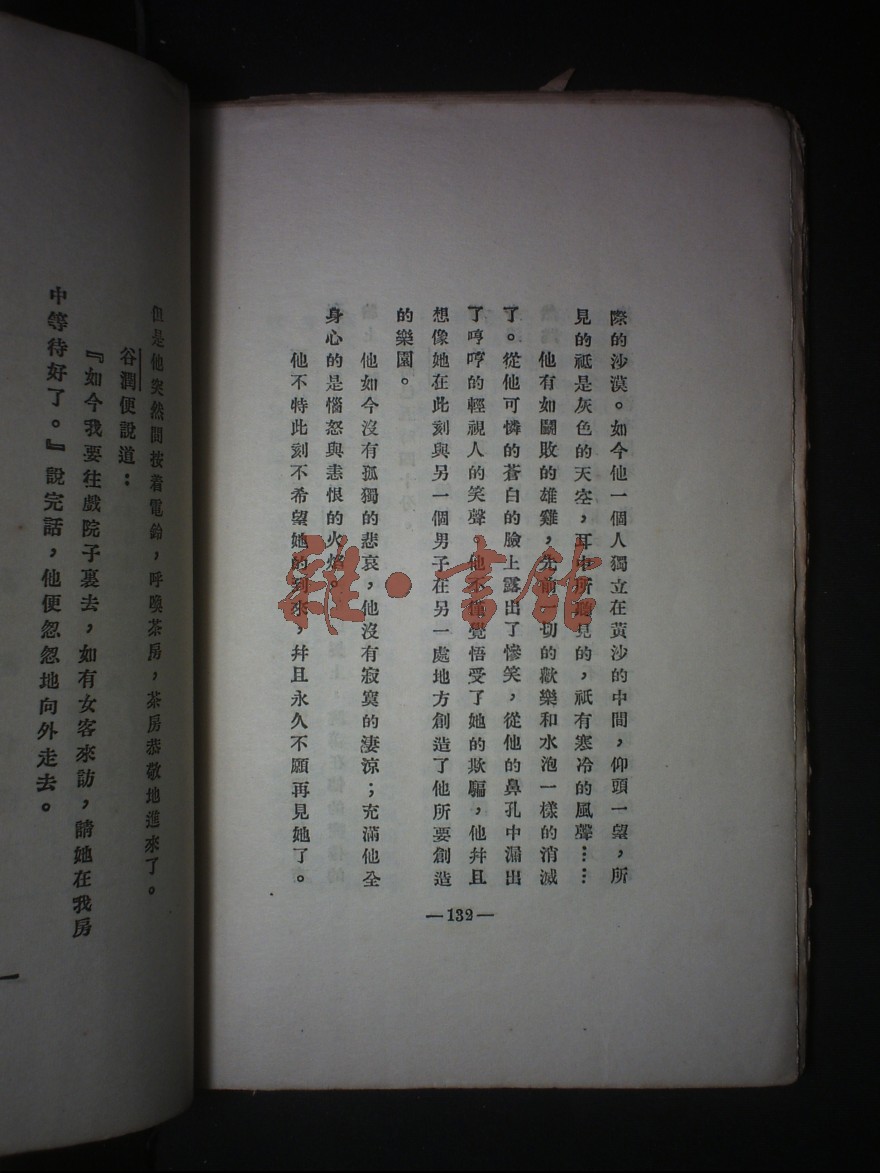 際的沙漠。如今他一個人獨立在黃沙的中間，仰頭一望，所
見的祇是灰色的天空，耳中所聽見的，祇有寒冷的風聲……
他有如鬭敗的雄雞，先前一切的歡樂和水泡一樣的消滅
了。從他可憐的蒼白的臉上露出了慘笑，從他的鼻孔中漏出
了哼哼的輕視人的笑聲。他不僅覺悟受了她的欺騙，他幷且
想像她在此刻與另一個男子在另一處地方創造了他所要創造
的樂園。
他如今沒有孤獨的悲哀，他沒有寂寞的淒涼；充滿他全
身心的是惱怒與恚恨的火焰。
他不特此刻不希望她的到來，幷且永久不願再見她了。
—132—
但是他突然間按着電鈴，呼喚茶房，茶房恭敬地進來了。
谷潤便說道：
『如今我要往戲院子裏去，如有女客來訪，請她在我房
中等待好了。』說完話，他便怱怱地向外走去。
雜·書館